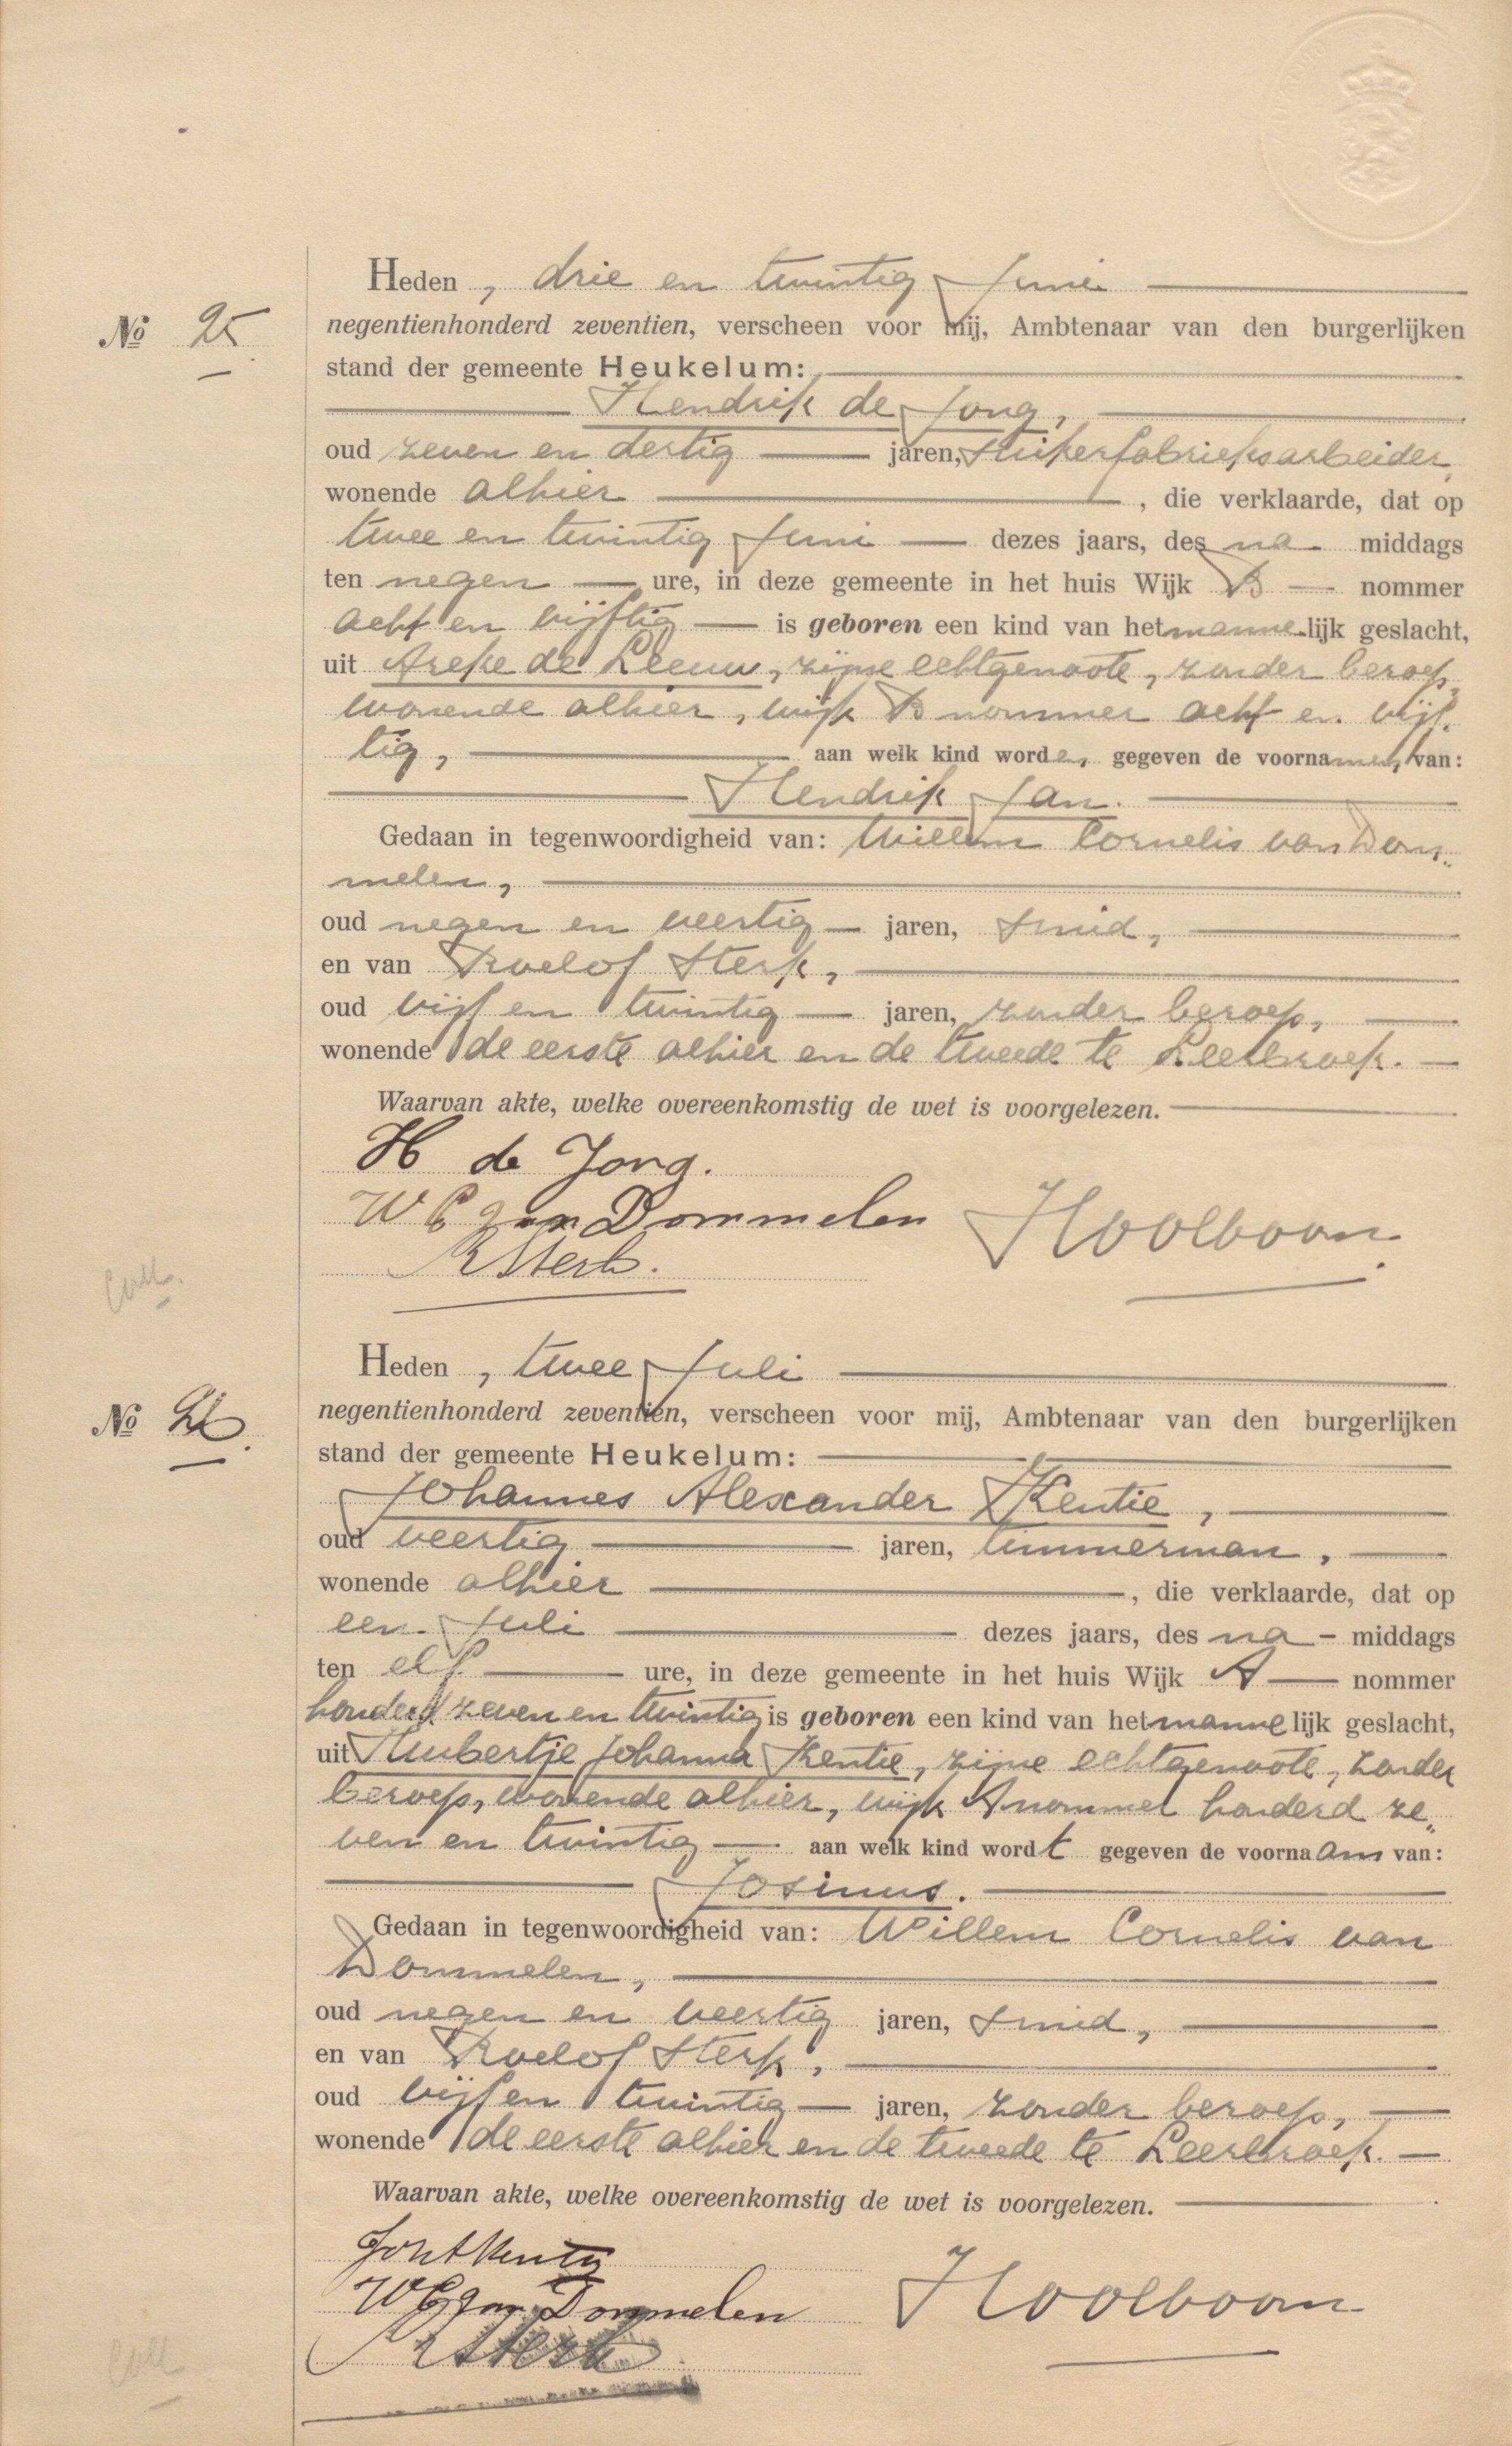 Heden , drie en twintig Juni
negentienhonderd zeventien, verscheen voor mij, Ambtenaar van den burgerlijken
No 25.
stand der gemeente Heukelum:
Hendrik de Jong,
oud zeven en dertig jaren, suikerfabrieksarbeider,
wonende alhier , die verklaarde, dat op
twee en twintig Juni dezes jaars, des na middags
ten negen ure, in deze gemeente in het huis Wijk B nommer
acht en vijftig is geboren een kind van het mannelijk geslacht,
uit Arefke de Leeuw, zijne echtgenoote, zonder beroep,
wonende alhier, wijk B nommer acht en vijf-
tig, aan welk kind worden gegeven de voornamen van:
Hendrik Jan.
Gedaan in tegenwoordigheid van: Willem Cornelis van Dom„
melen,
oud negen en veertig jaren, smid,
en van Roelof Sterk,
oud vijf en twintig jaren, zonder beroep,
wonende de eerste alhier en de tweede te Leerbroek.
Waarvan akte, welke overeenkomstig de wet is voorgelezen.
H de Jong.
W C van Dommelen Hoolboom
R Sterk.
Coll.
Heden , twee Juli
negentienhonderd zeventien, verscheen voor mij, Ambtenaar van den burgerlijken
No 26.
stand der gemeente Heukelum:
Johannes Alexander Kentie,
oud veertig jaren, timmerman,
wonende alhier , die verklaarde, dat op
een Juli dezes jaars, des na middags
ten elf ure, in deze gemeente in het huis Wijk A nommer
honderd zeven en twintig is geboren een kind van het mannelijk geslacht,
uit Huibertje Johanna Kentie, zijne echtgenoote, zonder
beroep, wonende alhier, wijk A nommer honderd ze„
ven en twintig aan welk kind wordt gegeven de voornaam van:
Josinus.
Gedaan in tegenwoordigheid van: Willem Cornelis van
Dommelen,
oud negen en veertig jaren, smid,
en van Roelof Sterk,
oud vijf en twintig jaren, zonder beroep,
wonende de eerste alhier en de tweede te Leerbroek.
Waarvan akte, welke overeenkomstig de wet is voorgelezen.
Joh A Kentie
W C van Dommelen Hoolboom
R Sterk
Coll